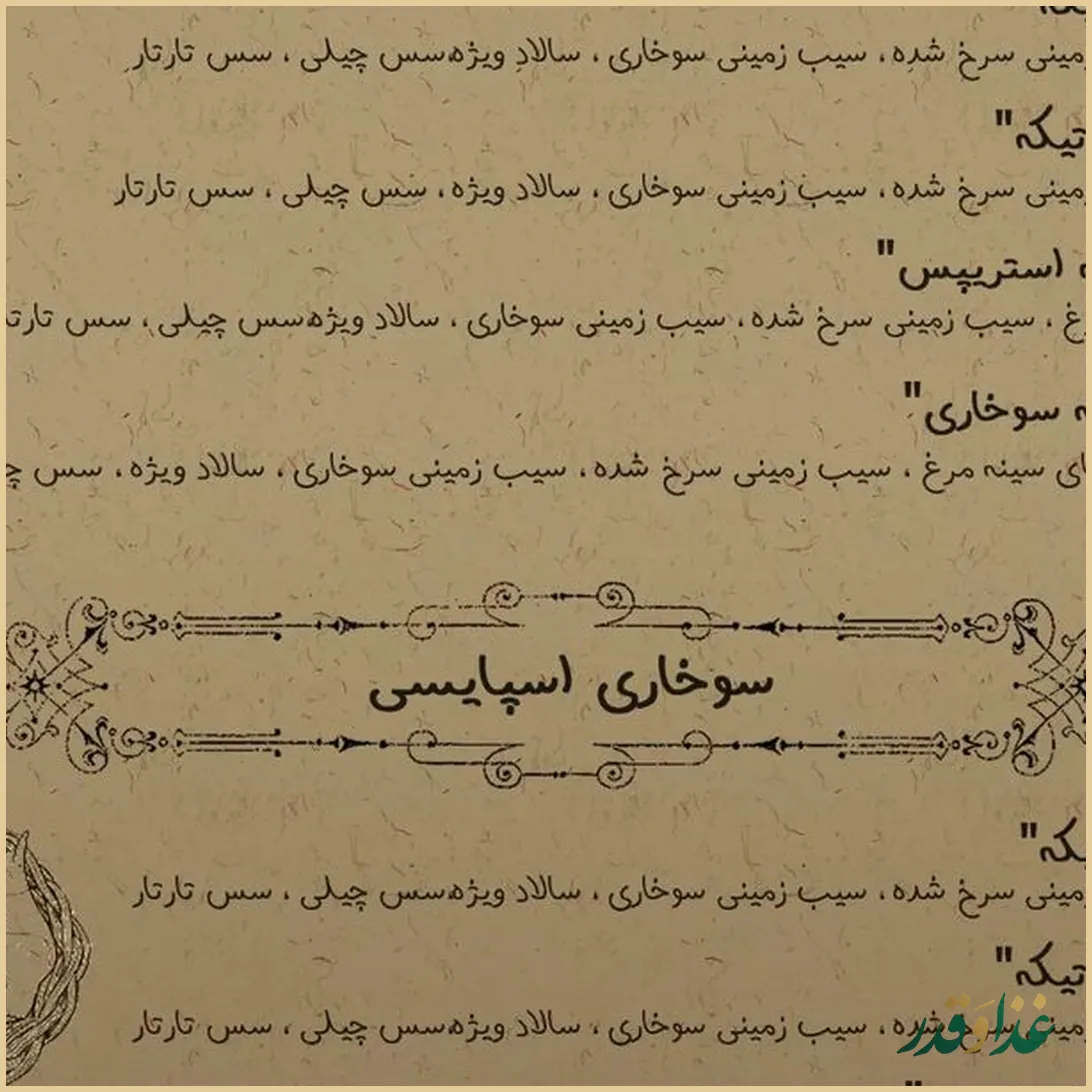 سرخ شده، سیب زمینی سوخاری ، سالاد ویژه،سس چیلی ، سس تارتار
تیکه"
سرخ شده، سیب زمینی سوخاری ، سالاد ویژه، سس چیلی ، سس تارتار
استریپس"
سیب زمینی سرخ شده، سیب زمینی سوخاری ، سالاد ویژه،سس چیلی ، سس
سوخاری"
سینه مرغ ، سیب زمینی سرخ شده، سیب زمینی سوخاری ، سالاد ویژه، سس
سوخاری اسپایسی
سرخ شده، سیب زمینی سوخاری ، سالاد ویژه،سس چیلی ، سس تارتار
تیکه"
سرخ شده، سیب زمینی سوخاری ، سالاد ویژه،سس چیلی ، سس تارتار
غذا و قدر